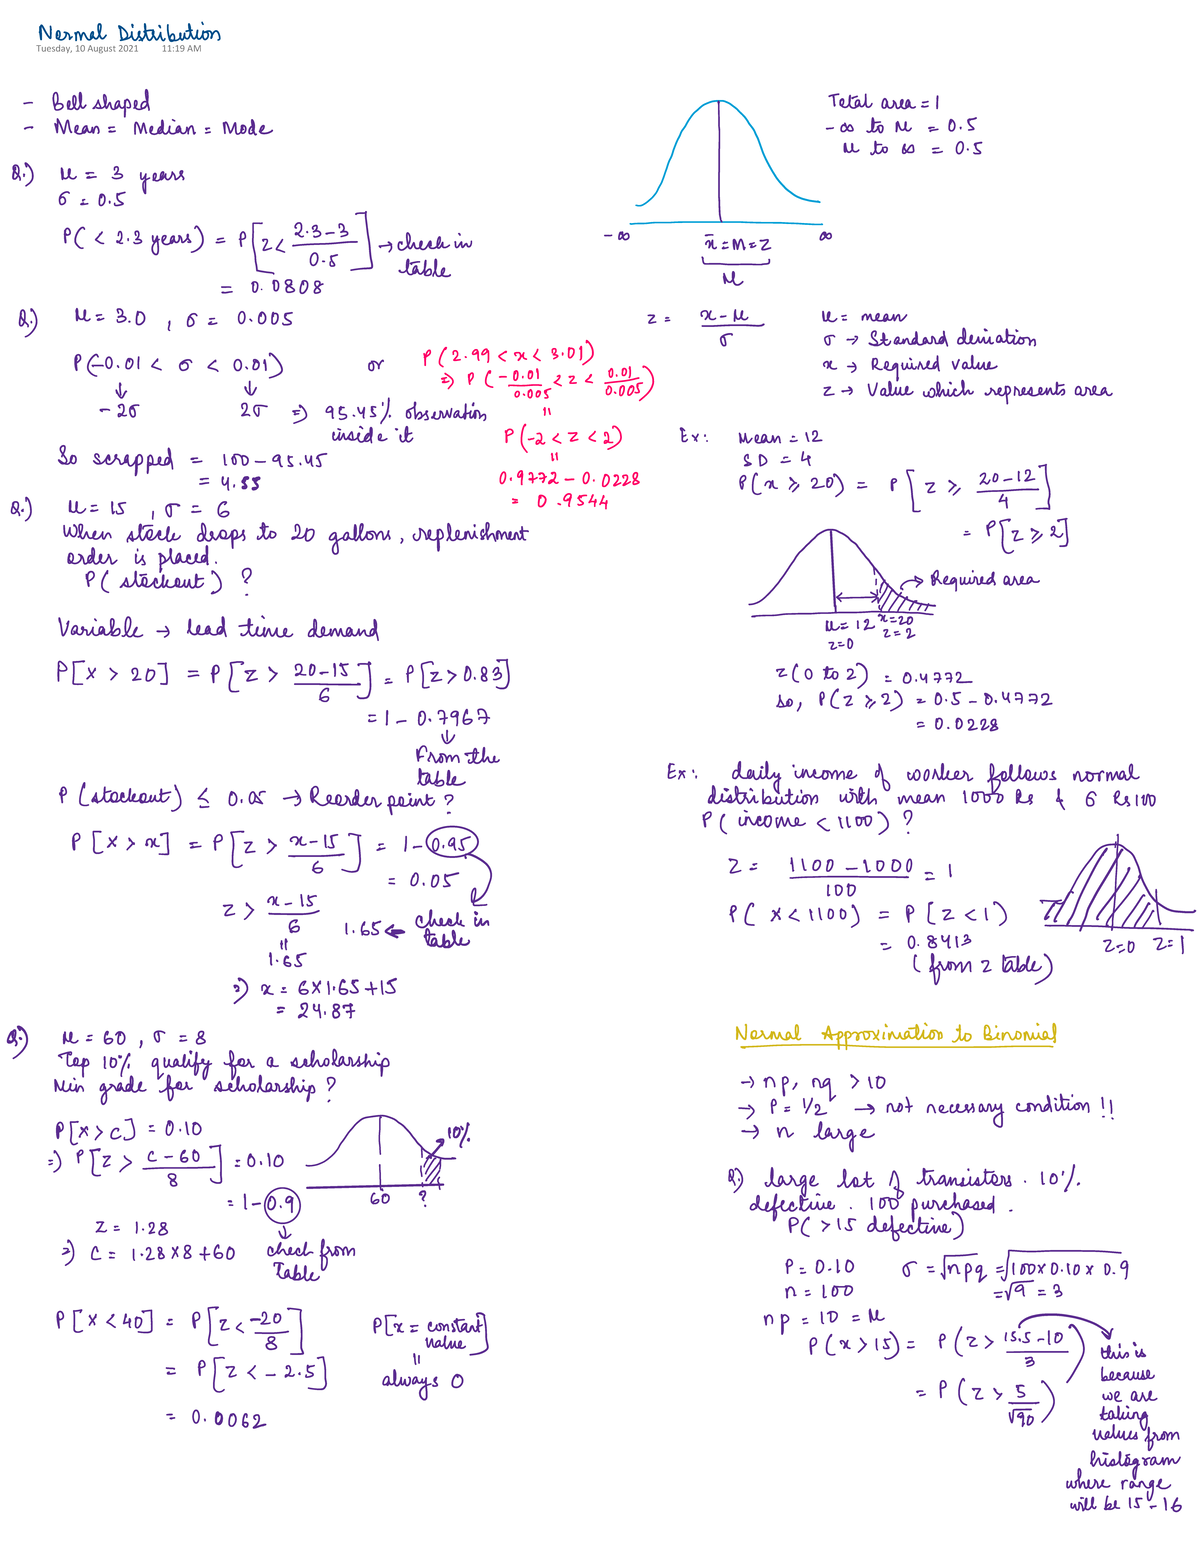 Normal Distribution
Tuesday, 10 August 2021 11:19 AM
- Bell shaped
- Mean = Median = Mode
Q.) μ = 3 years
σ = 0.5
P( < 2.3 years) = P[z < (2.3-3)/0.5] → check in table
= 0.0808
Q.) μ = 3.0 , σ = 0.005
P(-0.01 < σ < 0.01)
↓ ↓
-2σ 2σ ⇒ 95.45% observation inside it
So scrapped = 100 - 95.45
= 4.55
or P(2.99 < x < 3.01)
⇒ P(-0.01/0.005 < z < 0.01/0.005)
=
P(-2 < z < 2)
=
0.9772 - 0.0228
= 0.9544
Q.) μ = 15 , σ = 6
When stock drops to 20 gallons, replenishment
order is placed.
P( stockout ) ?
Variable → lead time demand
P[x > 20] = P[z > (20-15)/6] = P[z > 0.83]
= 1 - 0.7967
↓
From the
table
P (stockout) ≤ 0.05 → Reorder point ?
P[x > x] = P[z > (x-15)/6] = 1 - 0.95
= 0.05
z > (x-15)/6
1.65 ← check in table
=
1.65
⇒ x = 6×1.65+15
= 24.87
Q.) μ = 60 , σ = 8
Top 10% qualify for a scholarship
Min grade for scholarship ?
P[x > c] = 0.10
⇒ P[z > (c-60)/8] = 0.10
= 1 - 0.9
↓
check from
Table
10%
60 ?
z = 1.28
⇒ c = 1.28×8+60
P[x < 40] = P[z < -20/8]
= P[z < -2.5]
= 0.0062
P[x = constant value]
=
always 0
Total area = 1
-∞ to μ = 0.5
μ to ∞ = 0.5
-∞ x̄ = M = Z ∞
μ
z = (x-μ)/σ
μ = mean
σ → Standard deviation
x → Required value
z → Value which represents area
Ex: Mean = 12
SD = 4
P(x ⩾ 20) = P[z ⩾ (20-12)/4]
= P[z ⩾ 2]
→ Required area
μ = 12 x=20
z=0 z=2
z(0 to 2) = 0.4772
so, P(z ⩾ 2) = 0.5 - 0.4772
= 0.0228
Ex: daily income of worker follows normal
distribution with mean 1000 Rs & σ Rs 100
P( income < 1100) ?
z = (1100-1000)/100 = 1
P( x < 1100) = P[z < 1)
= 0.8413
(from z table)
z=0 z=1
Normal Approximation to Binomial
→ np, nq > 10
→ P = 1/2 → not necessary condition !!
→ n large
Q) large lot of transistors. 10%
defective. 100 purchased.
P( > 15 defective)
P = 0.10 σ = √npq = √100×0.10×0.9
n = 100 = √9 = 3
np = 10 = μ
P(x > 15) = P(z > (15.5-10)/3)
= P(z > 5/√90)
this is
because
we are
taking
values from
histogram
where range
will be 15-16